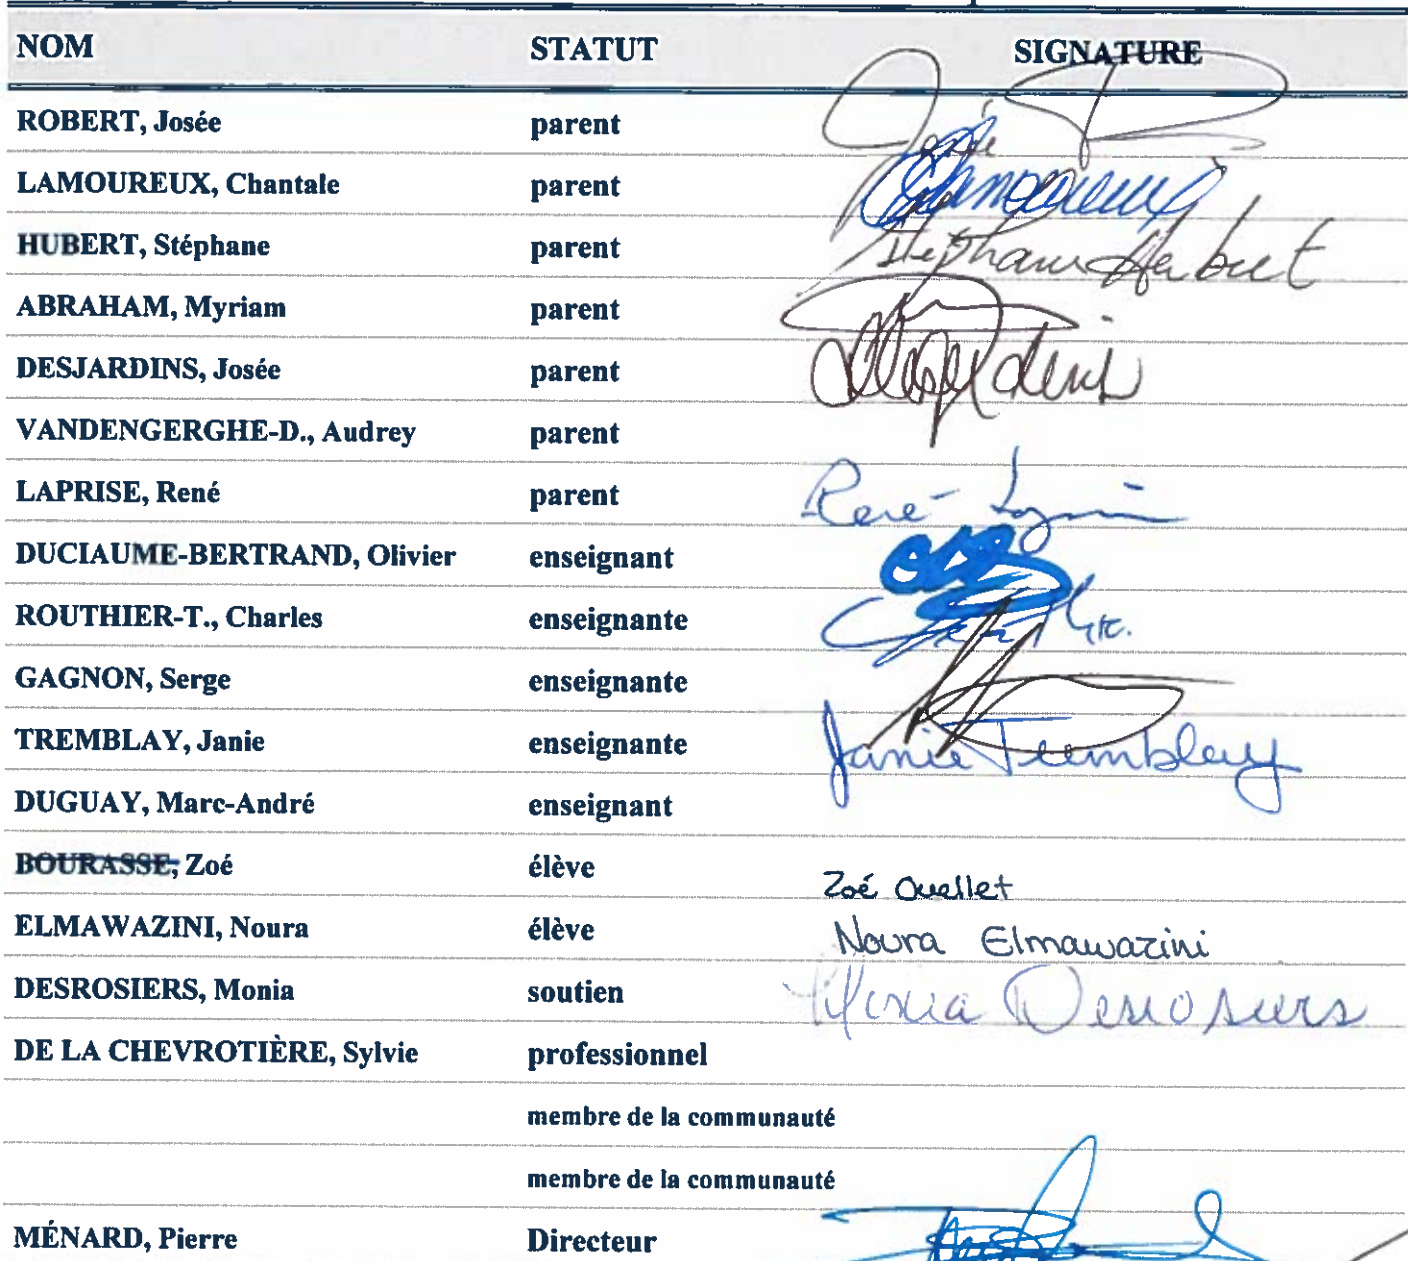 NOM STATUT SIGNATURE
ROBERT, Josée parent Josée
LAMOUREUX, Chantale parent
HUBERT, Stéphane parent Stéphane Hubert
ABRAHAM, Myriam parent
DESJARDINS, Josée parent
VANDENGERGHE-D., Audrey parent
LAPRISE, René parent René
DUCIAUME-BERTRAND, Olivier enseignant
ROUTHIER-T., Charles enseignante
GAGNON, Serge enseignante
TREMBLAY, Janie enseignante Janie Tremblay
DUGUAY, Marc-André enseignant
BOURASSE, Zoé élève Zoé Ouellet
ELMAWAZINI, Noura élève Noura Elmawazini
DESROSIERS, Monia soutien Monia Desrosiers
DE LA CHEVROTIÈRE, Sylvie professionnel
membre de la communauté
membre de la communauté
MÉNARD, Pierre Directeur